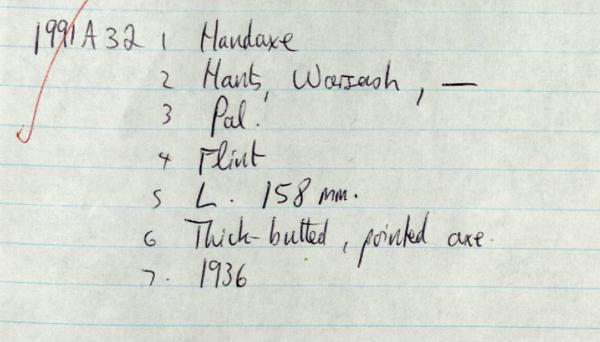 1991 A 32 1 Handaxe
2 Hants, Warsash, —
3 Pal.
4 Flint
5 L. 158 mm.
6 Thick-butted, pointed axe.
7. 1936